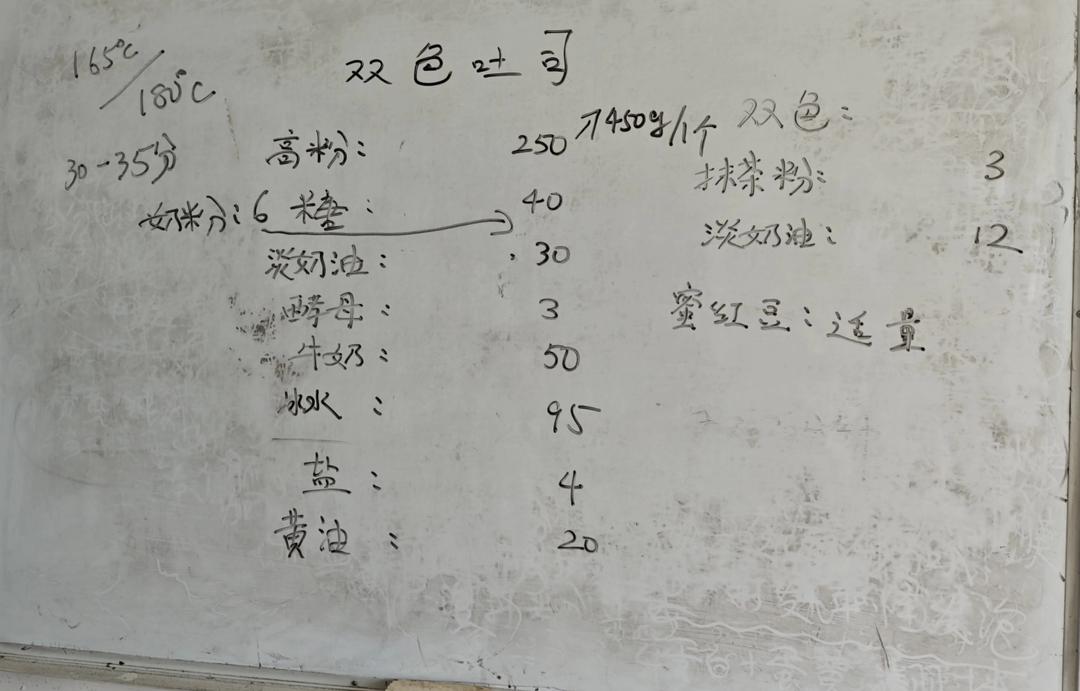 双色吐司
165℃/180℃
30-35分
高粉: 250 450g/1个
奶粉:6 糖: 40
淡奶油: 30
酵母: 3
牛奶: 50
冰水: 95
盐: 4
黄油: 20
双色:
抹茶粉: 3
淡奶油: 12
蜜红豆:适量